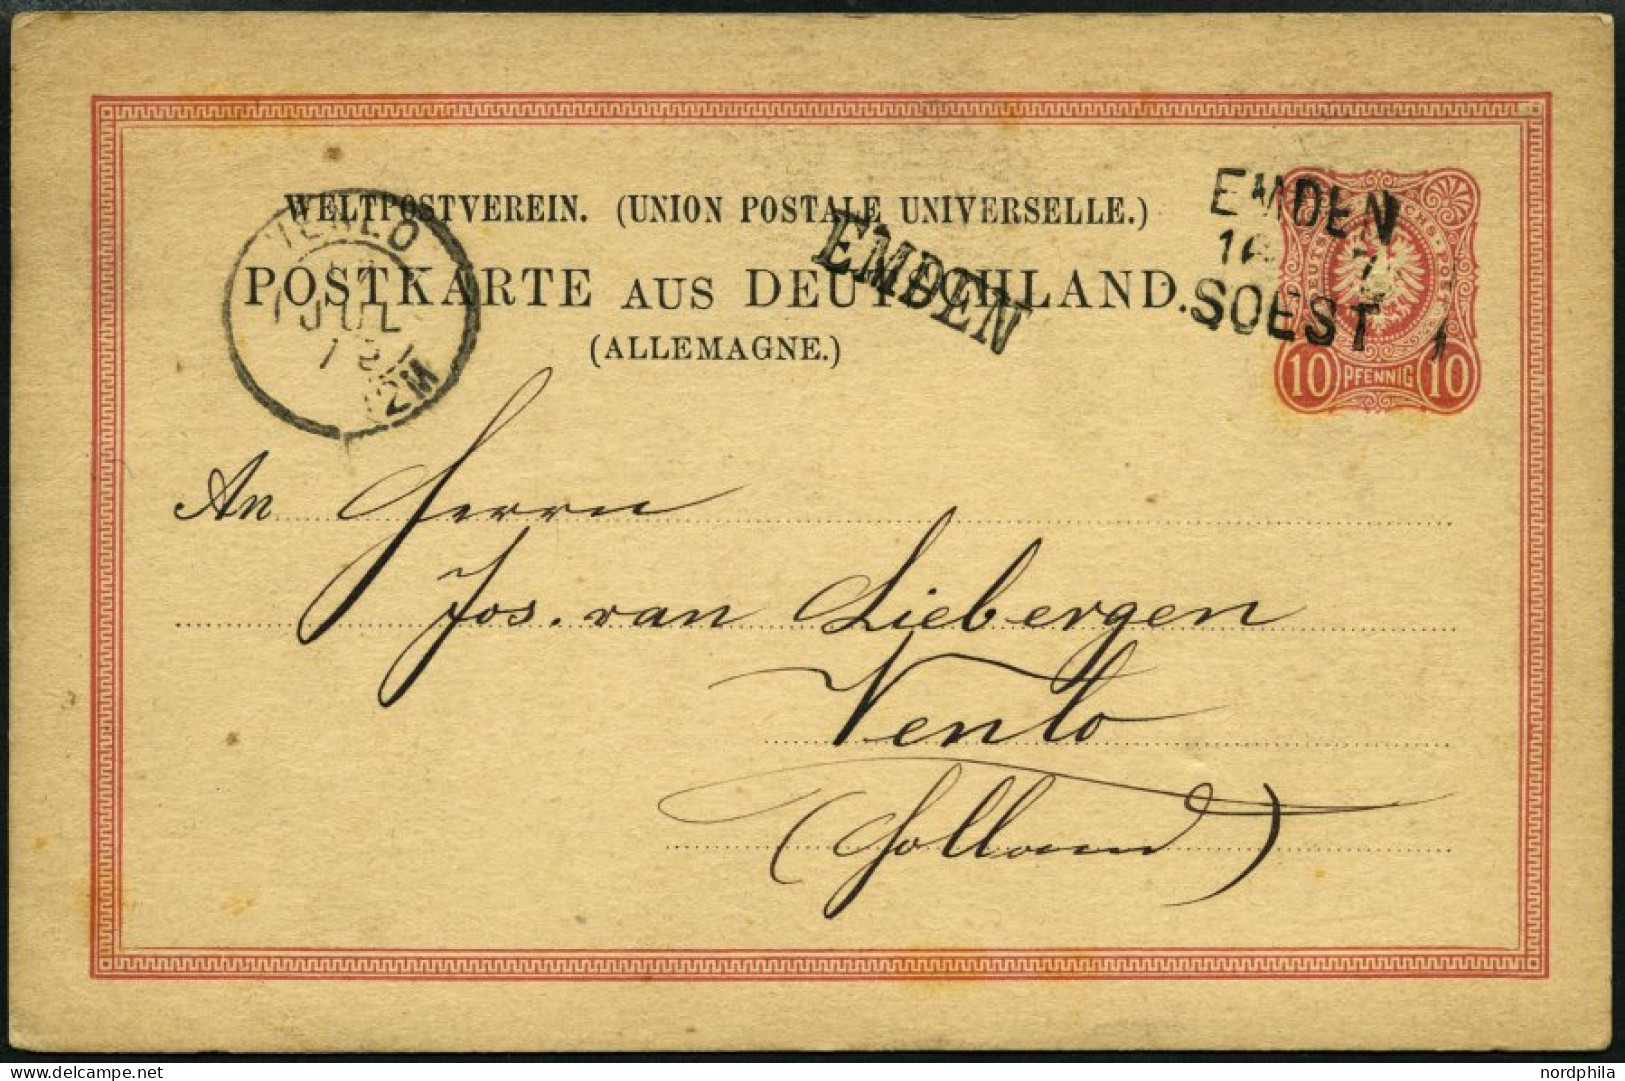 WELTPOSTVEREIN. (UNION POSTALE UNIVERSELLE.)
POSTKARTE AUS DEUTSCHLAND.
(ALLEMAGNE.)
VENLO
JUL
2M
EMDEN
EMDEN
SOEST
DEUTSCHE REICHS-POST
10 PFENNIG 10
An Herrn
Jos. van Liebergen
Venlo
(Holland)
nordphila